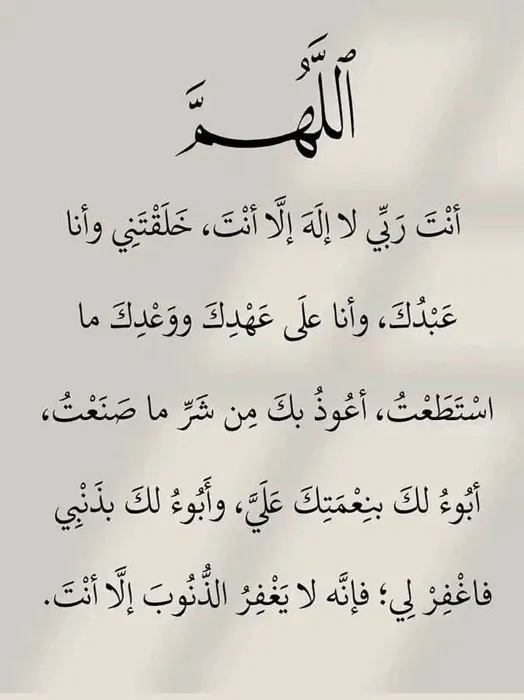 اللَّهُمَّ
أنْتَ رَبِّي لا إلَهَ إلَّا أنْتَ، خَلَقْتَنِي وأنا
عَبْدُكَ، وأنا علَى عَهْدِكَ ووَعْدِكَ ما
اسْتَطَعْتُ، أعُوذُ بكَ مِن شَرِّ ما صَنَعْتُ،
أبُوءُ لكَ بنِعْمَتِكَ عَلَيَّ، وأَبُوءُ لكَ بذَنْبِي
فاغْفِرْ لِي؛ فإنَّه لا يَغْفِرُ الذُّنُوبَ إلَّا أنْتَ.